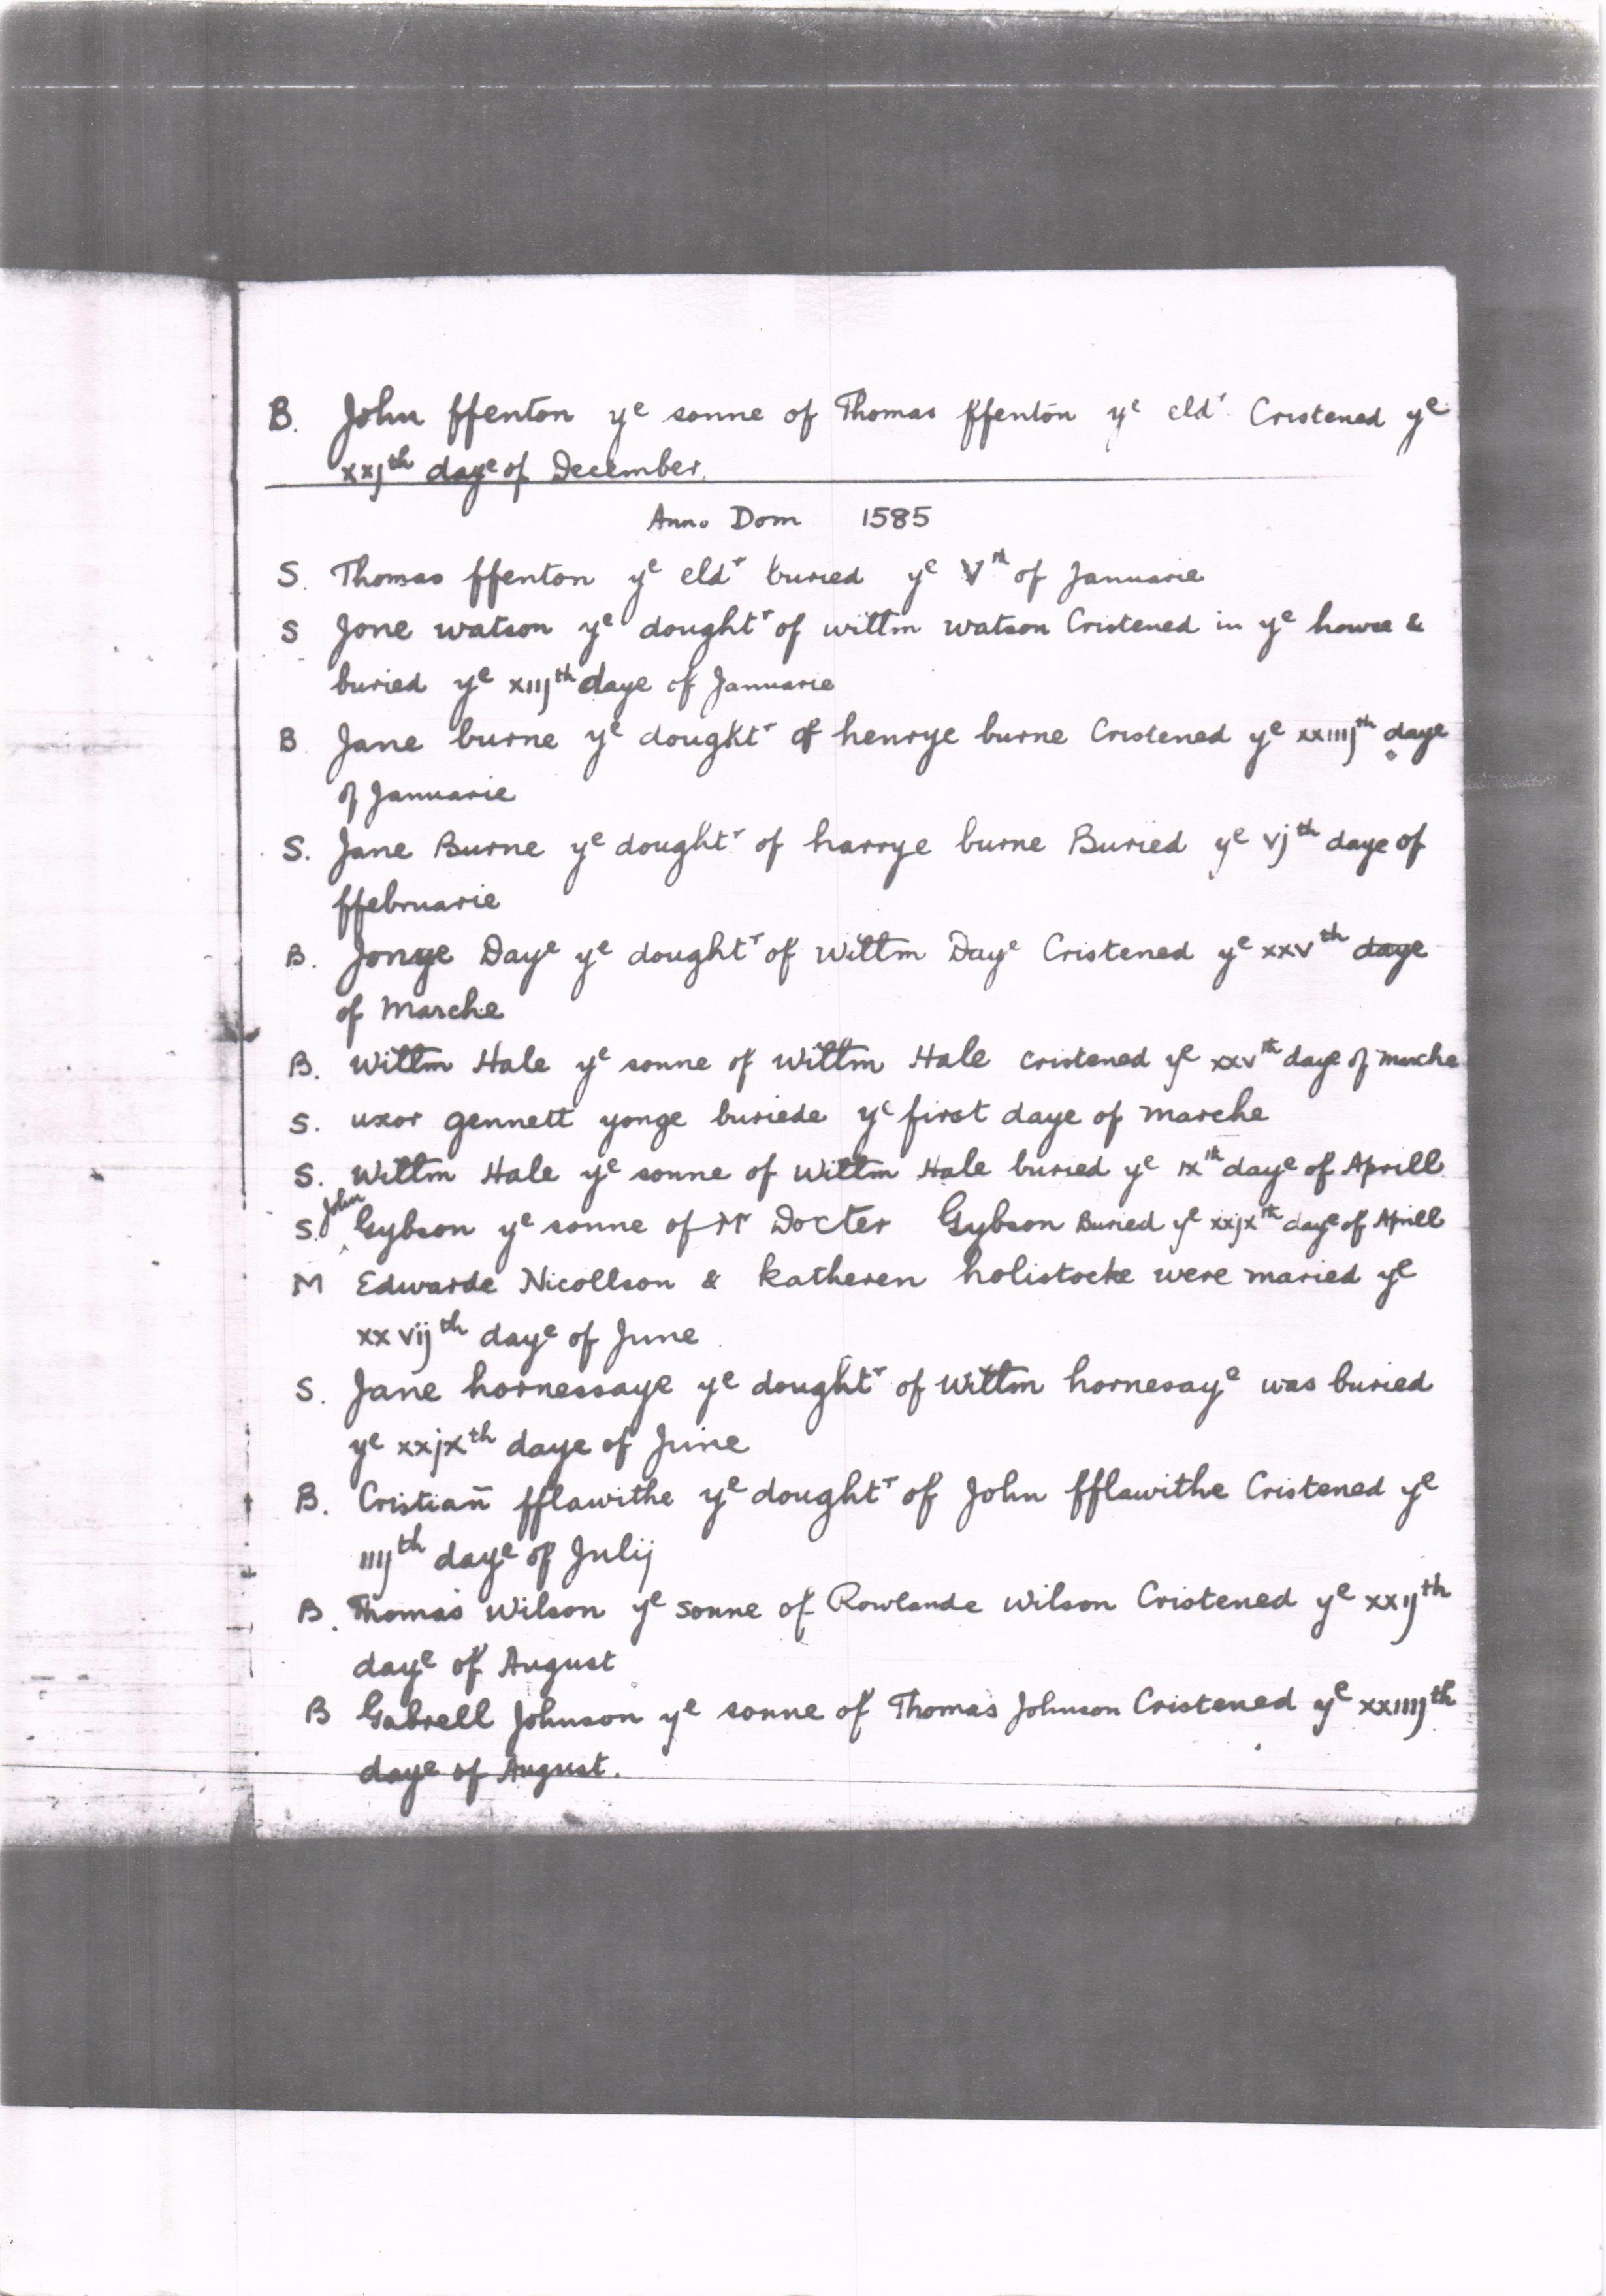 B. John ffenton yᵉ sonne of Thomas ffenton yᵉ eldʳ Cristened yᵉ
xxjᵗʰ dayᵉ of December.
Anno Dom 1585
S. Thomas ffenton yᵉ eldʳ buried yᵉ Vᵗʰ of Januarie
S Jone watson yᵉ doughtʳ of willm watson Cristened in yᵉ howse &
buried yᵉ xiijᵗʰ daye of Januarie
B Jane burne yᵉ doughtʳ of henrye burne Cristened yᵉ xxiiijᵗʰ daye
of Januarie
S. Jane Burne yᵉ doughtʳ of harrye burne Buried yᵉ vjᵗʰ daye of
ffebruarie
B. Jonye Dayᵉ yᵉ doughtʳ of Willm Dayᵉ Cristened yᵉ xxvᵗʰ daye
of Marche
B. Willm Hale yᵉ sonne of Willm Hale cristened yᵉ xxvᵗʰ daye of marche
S. uxor gennett yonge buriede yᵉ first daye of marche
S. Willm Hale yᵉ sonne of Willm Hale buried yᵉ ixᵗʰ dayᵉ of Aprill
S. John Gybson yᵉ sonne of Mʳ Docter Gybson Buried yᵉ xxjxᵗʰ dayᵉ of Aprill
M Edwarde Nicollson & katheren holistocke were maried yᵉ
xxvijᵗʰ dayᵉ of June
S. Jane hornessaye yᵉ doughtʳ of Willm hornesayᵉ was buried
yᵉ xxjxᵗʰ daye of June
B. Cristiañ fflawithe yᵉ doughtʳ of John fflawithe Cristened yᵉ
iiijᵗʰ dayᵉ of Julij
B. Thomas Wilson yᵉ sonne of Rowlande Wilson Cristened yᵉ xxijᵗʰ
dayᵉ of August
B Gabrell Johnson yᵉ sonne of Thomas Johnson Cristened yᵉ xxiiijᵗʰ
dayᵉ of August.